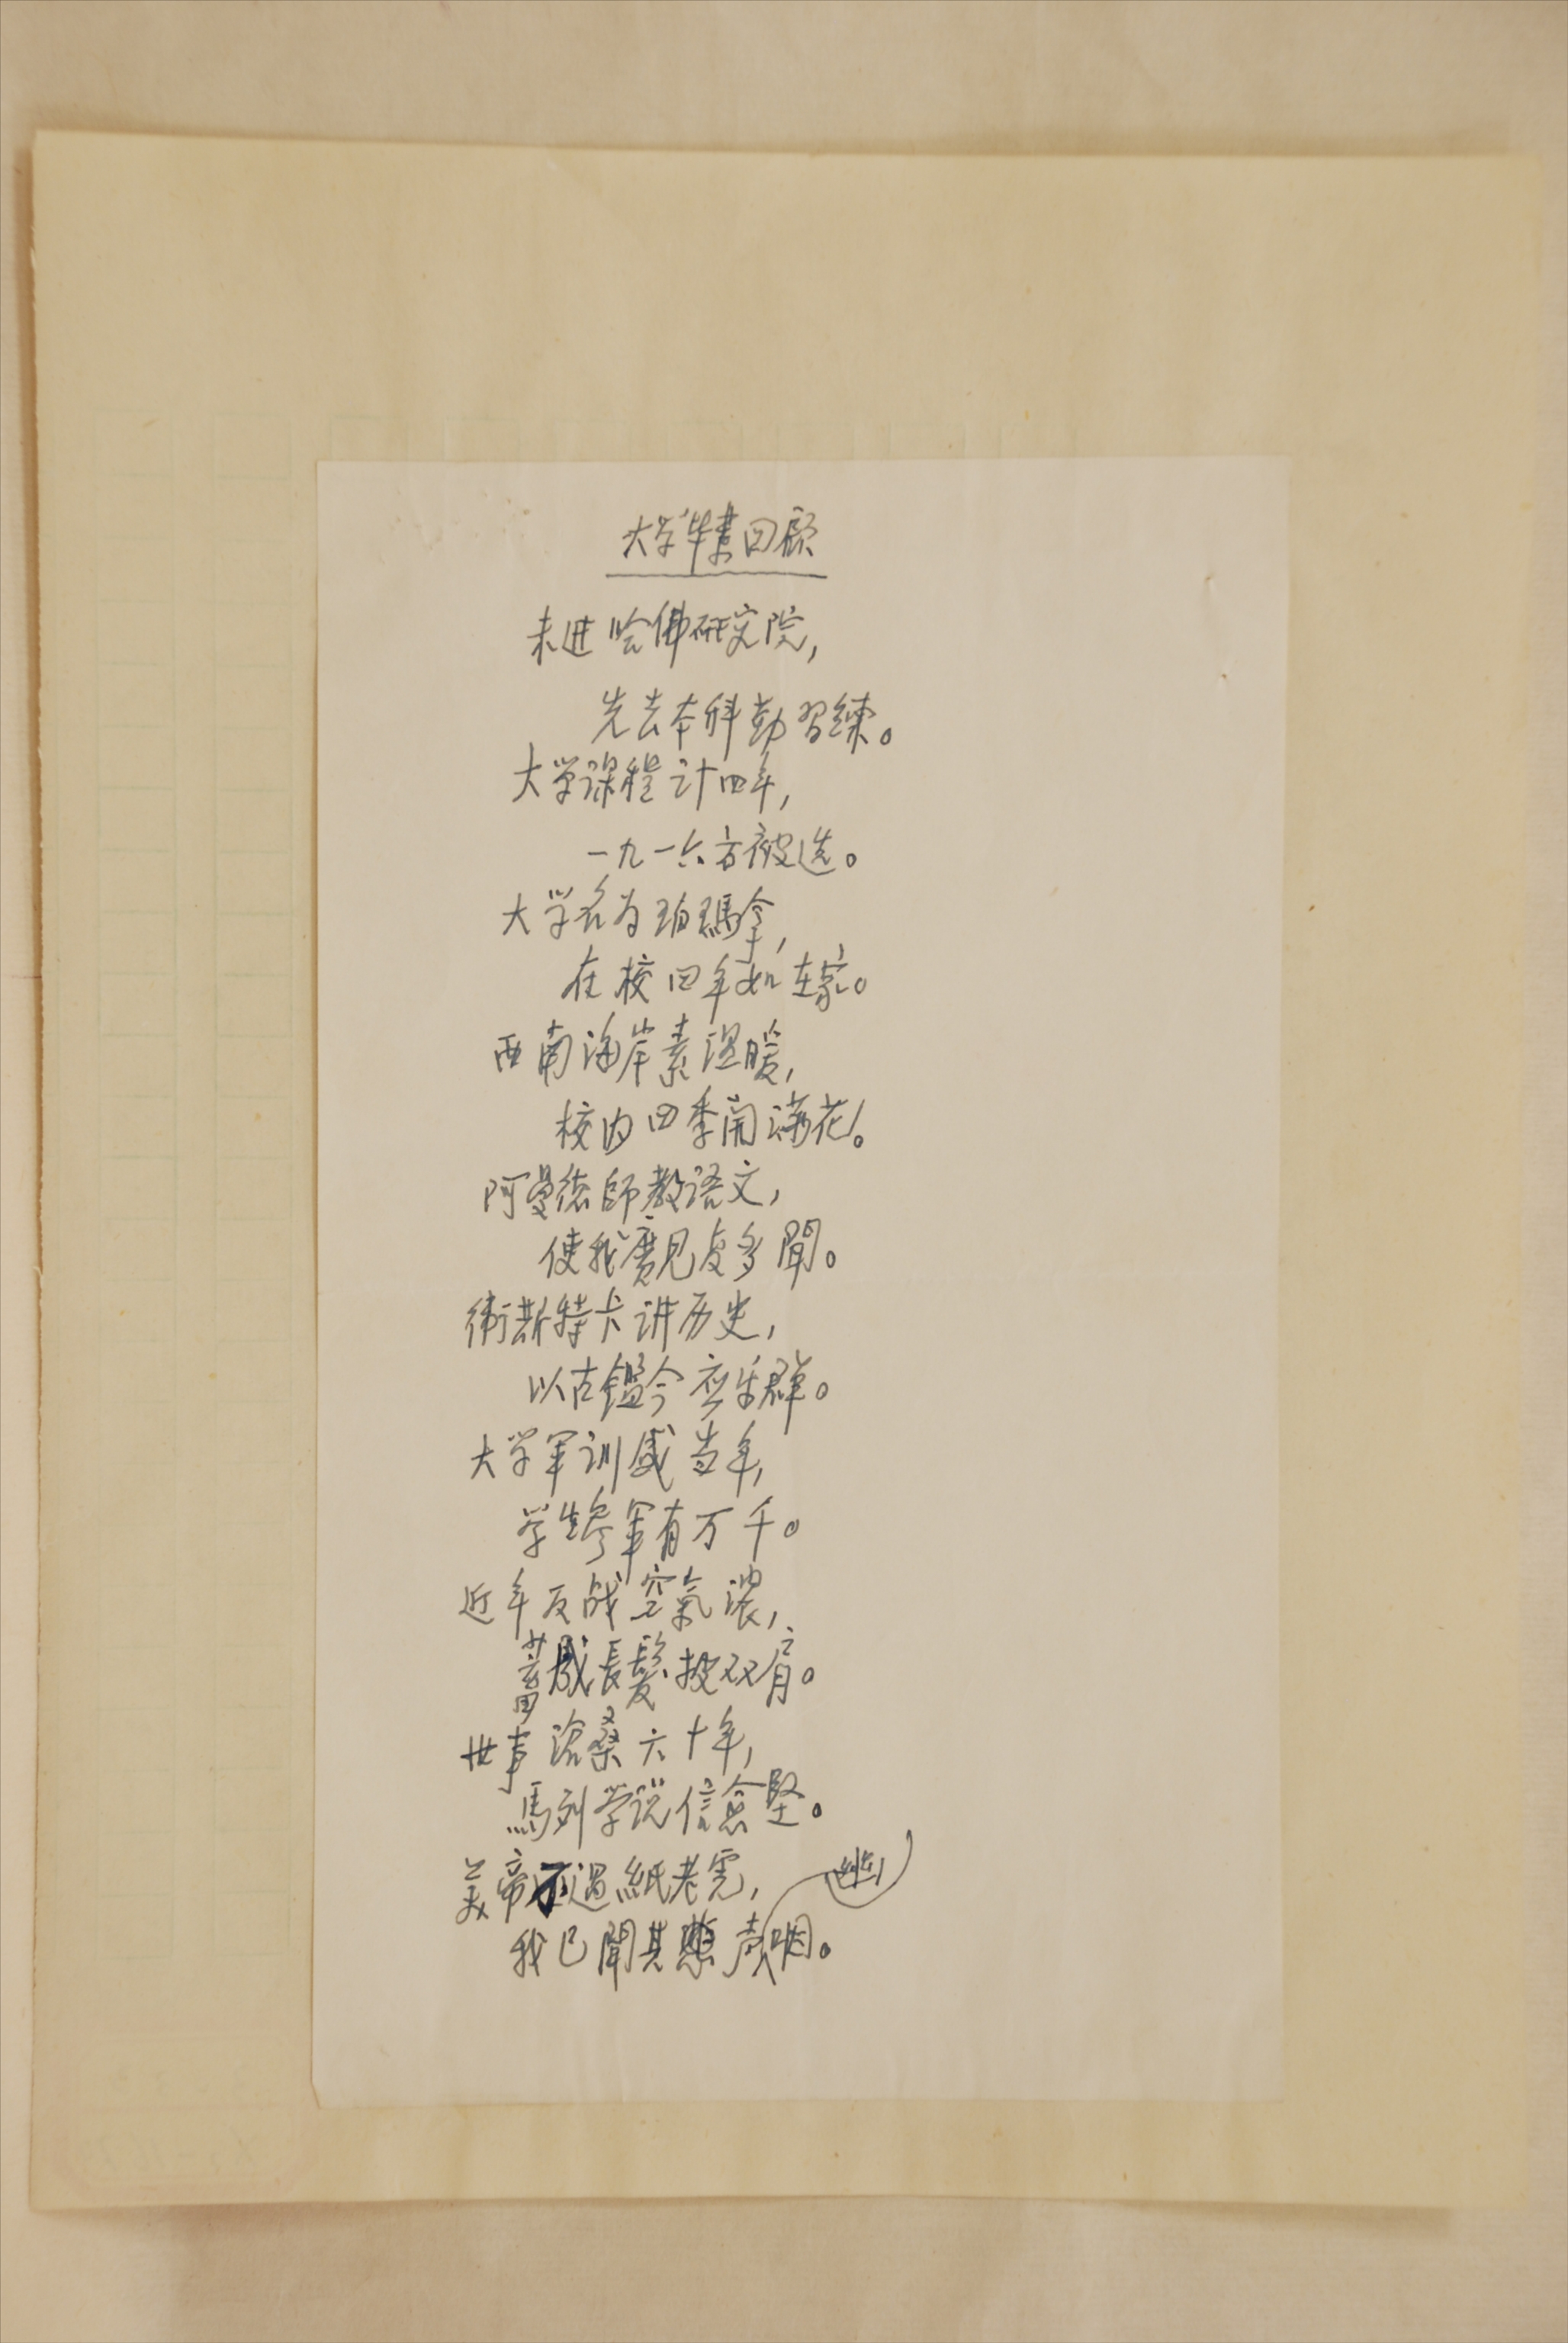 大学毕業回顧
未进哈佛研究院,
先去本科勤習練。
大学课程计四年,
一九一六方被选。
大学名为珀瑪拿,
在校四年如在家。
西南海岸素温暖,
校内四季開满花。
阿曼德師教语文,
使我廣見及多聞。
衛斯特卡讲历史,
以古鑑今应乐群。
大学军训盛当年,
学生参军有万千。
近年反战空氣濃,
蓄成長髮披双肩。
世事沧桑六十年,
馬列学说信愈堅。
美帝不过紙老虎,
我已聞其声咽。